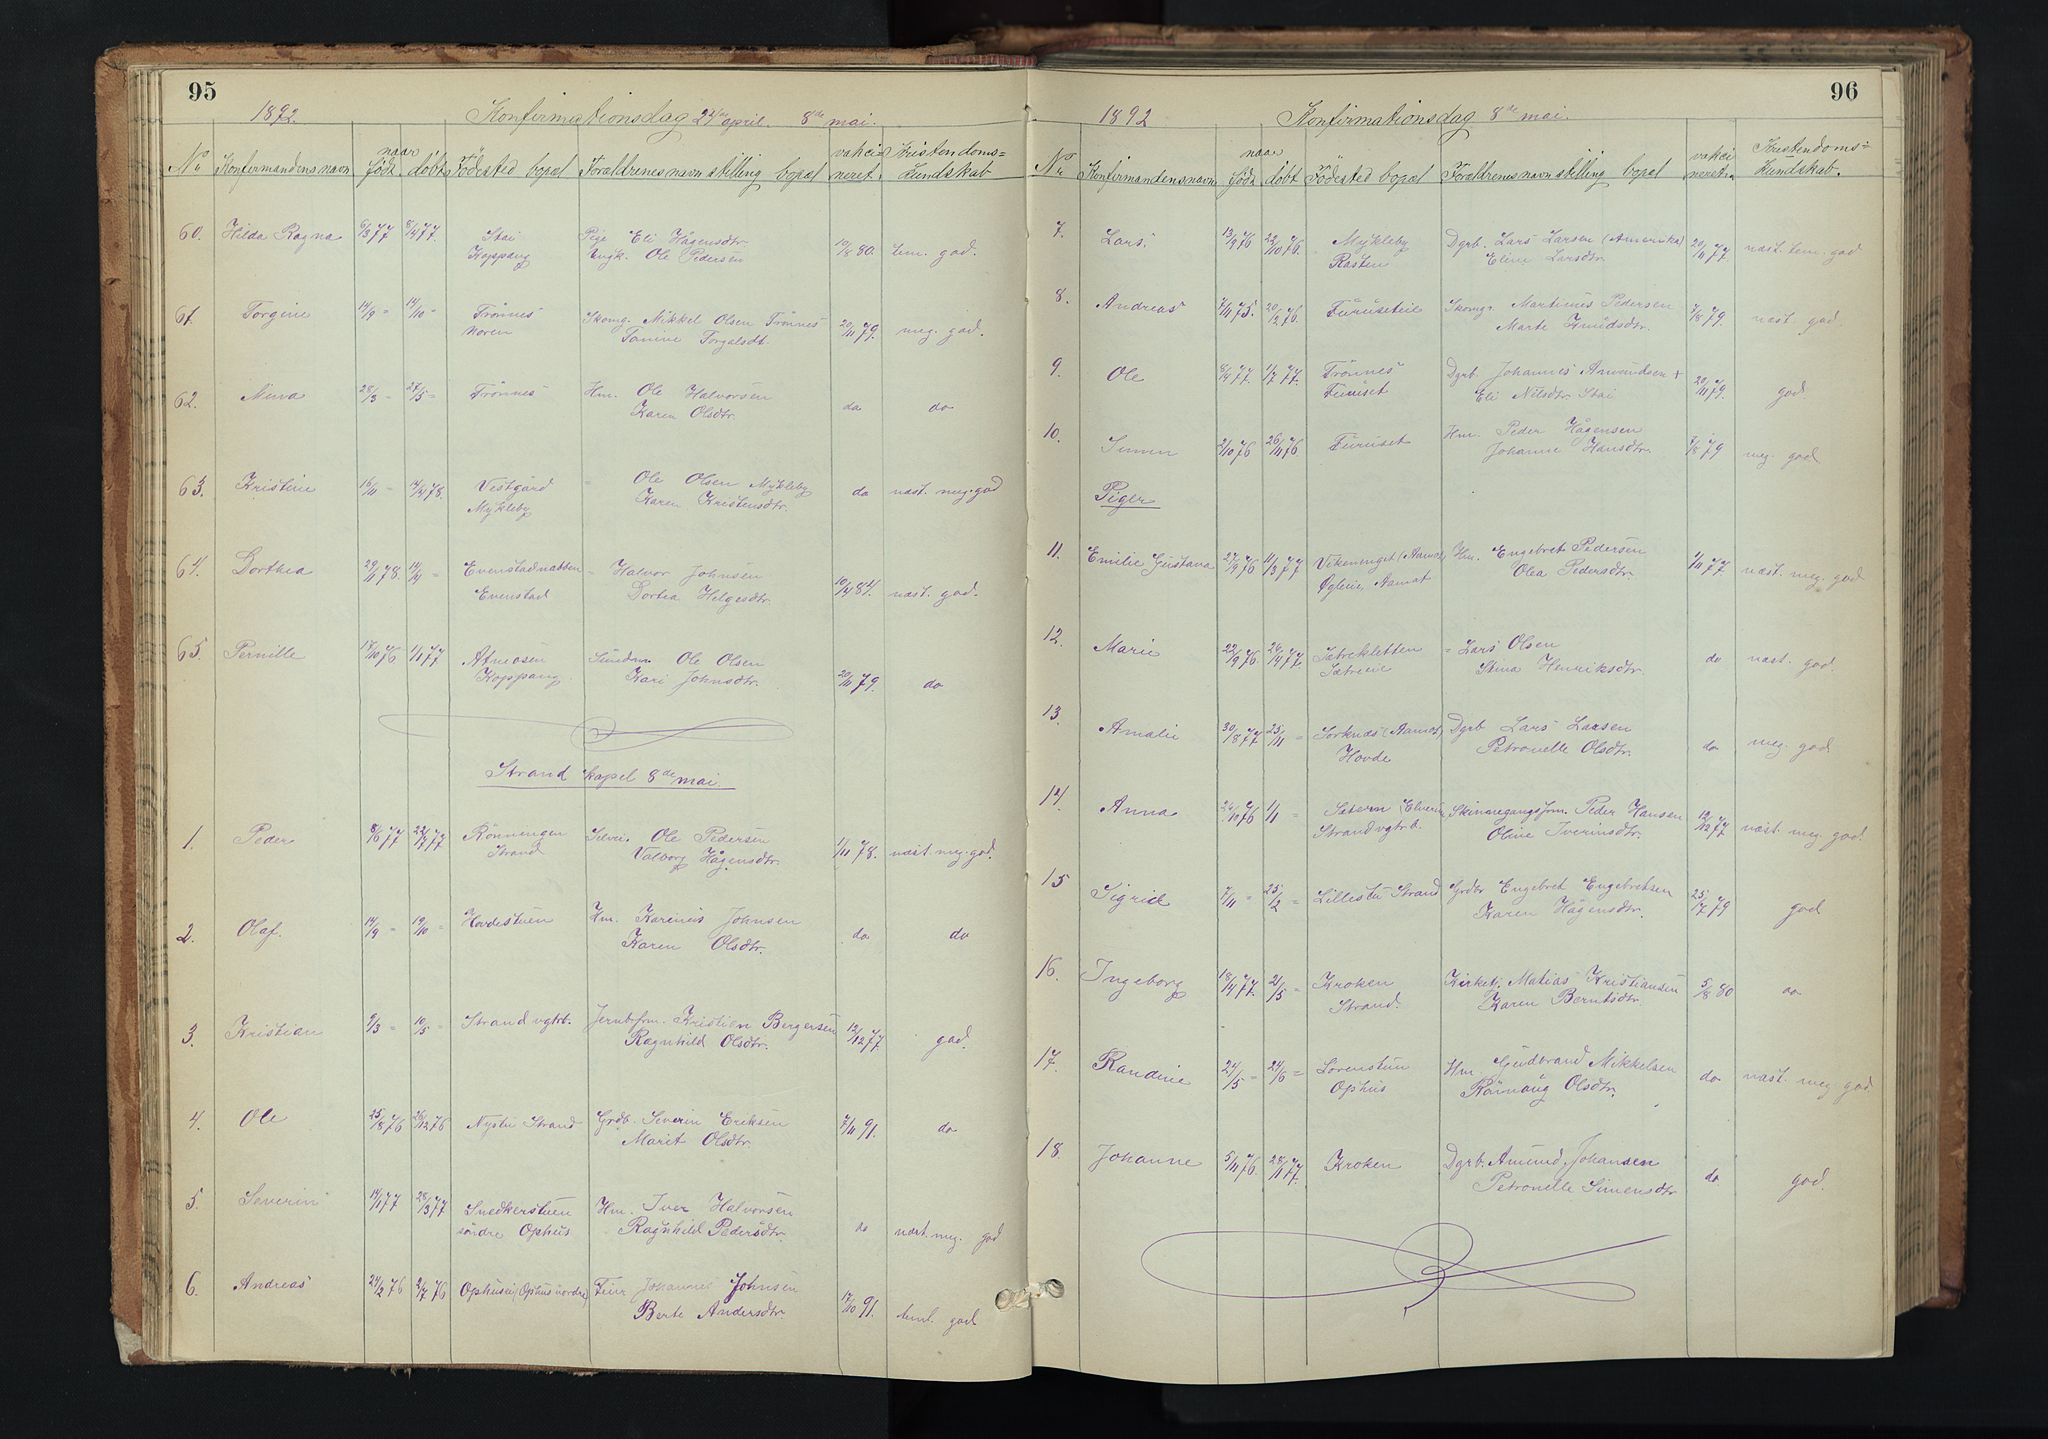 95
1892. Konfirmationsdag 24de april. 8de mai.
No Konfirmandens navn naar født døbt Fødested bopæl Forældrenes navn stilling bopæl vakcineret Kristendoms=kundskab
60. Hilda Ragna 6/3 77 8/4 77. Stai Koppang Pige Eli Hågensdtr. Ungk. Ole Pedersen 10/8 80. tem. god.
61. Torgine 14/9 = 14/10 = Trønnes noren Skomg. Mikkel Olsen Trønnes Tanine Torgalsdt. 20/11 79. meg. god.
62. 28/3 = 27/5 = Trønnes Hm. Ole Halvorsen Karen Olsdtr. do do
63. Kristine 16/11 = 14/4 78. Vestgård Mykleby = Ole Olsen Mykleby Karen Kristensdtr. do næst. meg. god
64. Dorthea 29/1 78. 14/4 = Evenstadnatten Evenstad = Halvor Johnsen Dortea Helgesdtr. 10/4 84. næst. god.
65. Pernille 17/10 76 1/1 77 Atneosen Koppang. Ole Olsen Kari Johnsdtr. 20/11 79. do
Strand kapel 8de mai.
1. Peder 8/6 77 22/7 77 Rønningen Strand Selvei. Ole Pedersen Valborg Hågensdtr. 1/11 78. næst. meg. god.
2. Olaf. 14/9 = 19/10 = Hovdestuen Hm. Karenus Johnsen Karen Olsdtr. do do
3. Kristian 9/3 = 10/5 = Strand vgtrb. Jernbfm. Kristian Bergersen Ragnhild Olsdtr. 12/12 77. god.
4. Ole 25/8 76 26/12 76 Nystu Strand Grdb. Severin Eriksen Marit Olsdtr. 7/11 91. do
5. Severin 14/1 77 28/3 77 Snedkerstuen søndre Ophus Hm. Iver Halvorsen Ragnhild Pedersdtr. do næst. meg. god
6. Andreas 24/2 76 2/7 76 Ophusei (Ophus nordre) Johannes Johnsen Berte Andersdtr. 17/10 91. teml. god
96
1892 Konfirmationsdag 8de mai.
No Konfirmandens navn naar født døbt Fødested bopæl Forældrenes navn stilling bopæl vakcineret. Kristendoms=kundskab.
7. Lars 13/9 76 22/10 76. Mykleby Rasten Dgrb. Lars Larsen (Amerika) Eline Larsdtr 20/11 77. næst. tem. god
8. Andreas 7/11 75. 20/2 76. Furuseteie Skomg. Martinus Pedersen Marte Knudsdtr. 7/8 79. næst. god.
9. Ole 8/4 77. 1/7 77. Trønnes Furuset Dgrb. Johannes Amundsen + Eli Nilsdtr. Stai 20/11 79. god
10. Simen 2/10 76 26/11 76. Furuset Hm. Peder Hågensen Johanne Hansdtr. 7/8 79 meg. god
Piger
11. Emilie Gustava 27/9 76 11/3 77 (Aamot) Øgleie, Aamot Hm. Engebret Pedersen Olea Pedersdtr. 1/11 77. næst. meg. god
12. Marie 22/9 76. 24/4 77. Sætrekletten Sætreeie = Lars Olsen Stina Henriksdtr. do næst. god.
13. Amalie 30/8 77 25/11 = Sorknæs (Aamot) Hovde Dgrb. Lars Larsen Petronelle Olsdtr. do meg. god
14. Anna 24/10 76 1/1 = (Elverum Strand vgtrb. Peder Hansen Oline Iverinsdtr. 12/12 77 næst. meg. god
15 Sigrid 7/11 = 25/2 = Lillestu Strand Grdbr Engebret Engebretsen Karen Hågensdtr. 25/7 79 god
16. Ingeborg 18/4 77. 21/5 = Kroken Strand. Kirket. Matias Kristiansen Karen Berntsdtr. 5/8 80 do
17. Randine 24/5 = 24/6 = Sorenstuen Ophus Hm. Gudbrand Mikkelsen Rønnaug Olsdtr. do næst. meg. god.
18. Johanne 5/11 76. 28/1 77. Kroken Dgrb. Amund Johansen Petronelle Simensdtr do god.